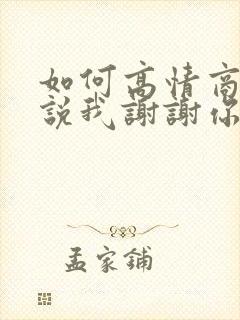 如何高情商
說我謝謝你
孟家鋪